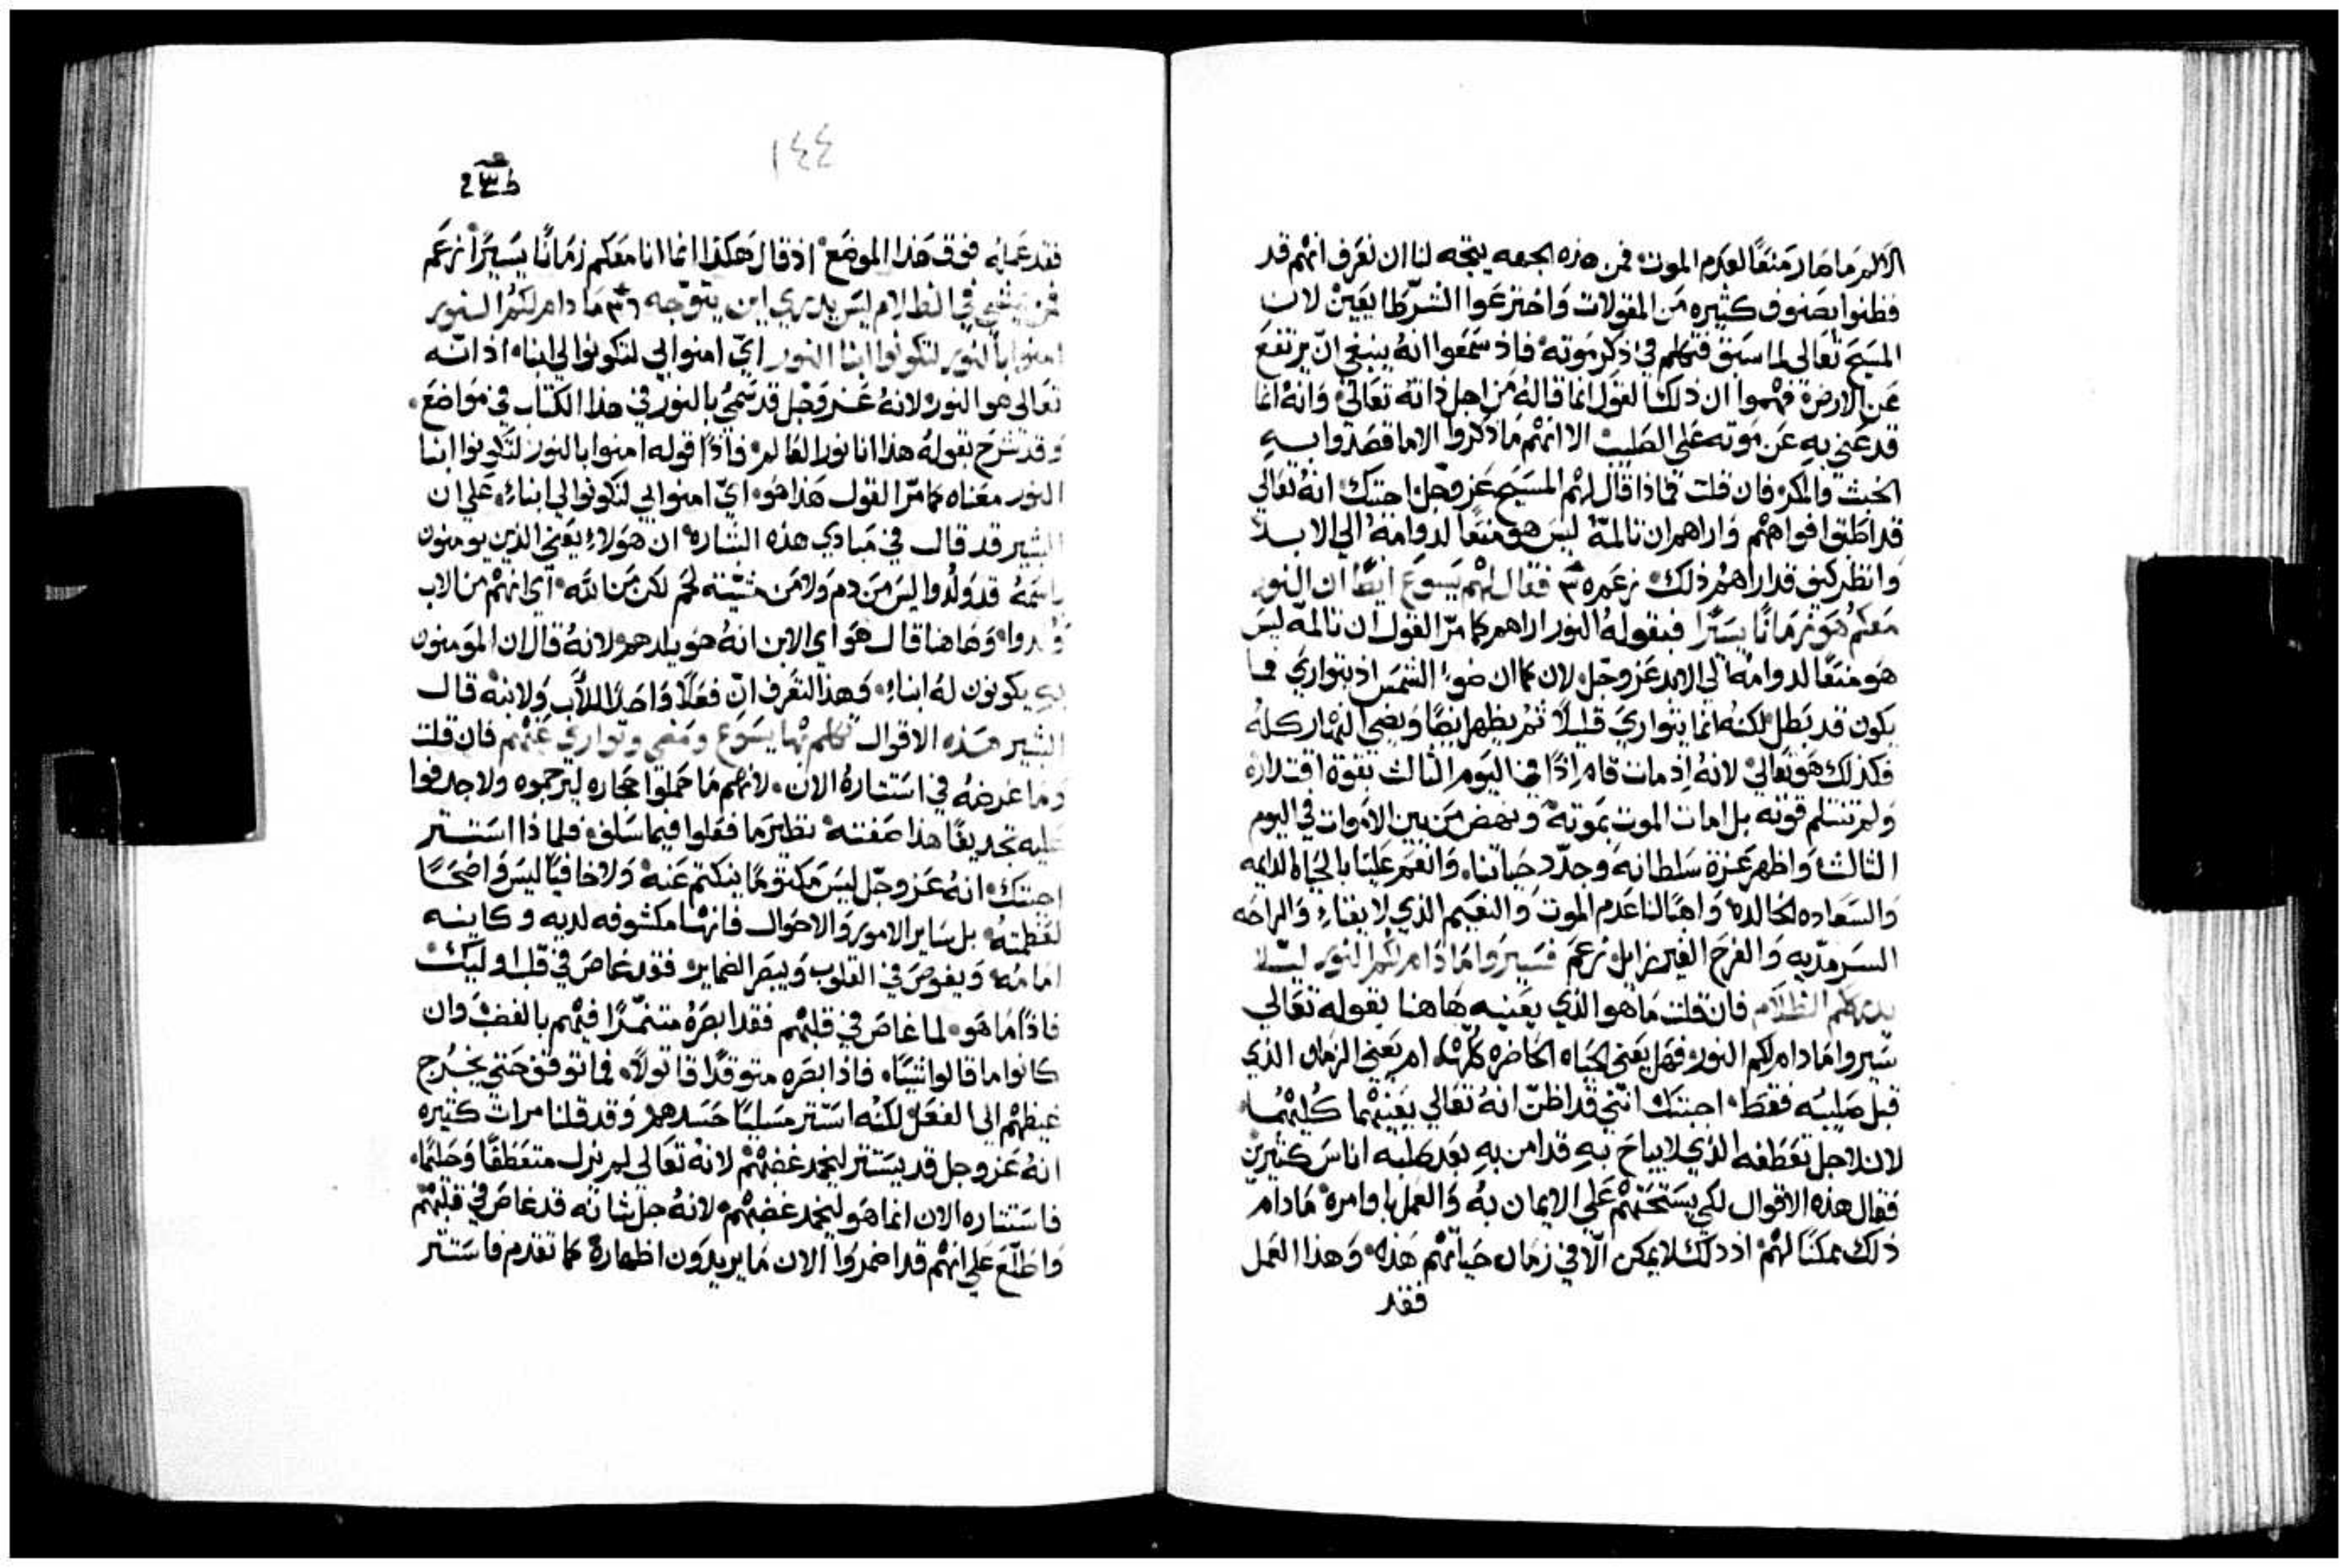 الالم ما صار منعًا لعدم الموت فمن هذه الجهه يتجه لنا ان نعرف انهم قد
فطنوا بصنوف كثيره من المقولات واخترعوا الشر طايعين لان
المسيح تعالى لما سبق فتكلم في ذكر موته فاذ سمعوا انه ينبغي ان يرتفع
عن الارض فهموا ان ذلك القول انما قاله من اجل ذاته تعالي وانه انما
قد عني به عن موته على الصليب الا انهم ما ذكروا الا ما قصدوا به
الخبث والمكر فان قلت فماذا قال لهم المسيح عز وجل اجبتك انه تعالي
قد اطبق افواههم واراهم ان تالمه ليس هو منعًا لدوامه الي الابد
وانظر كيف قد اراهم ذلك زعم فقال لهم يسوع ايضًا ان النور
معكم هو زمانًا يسيرًا فبقوله النور اراهم كما مرّ القول ان تالمه ليس
هو منعًا لدوامه الي الابد عز وجل لان كما ان ضوء الشمس اذ يتواري فما
يكون قد بطل لكنه انما يتواري قليلًا ثم يظهر ايضًا ويضي النهار كله
فكذلك هو تعالي لانه اذ مات قام اذًا في اليوم الثالث بقوة اقتداره
ولم تنثلم قوته بل امات الموت بموته ونهض من بين الاموات في اليوم
الثالث واظهر عزة سلطانه وجدّد حياتنا وانعم علينا بالحياه الدايمه
والسعاده الخالده واهبًا لنا عدم الموت والنعيم الذي لا يفناء والراحه
السرمديه والفرح الغير زايل زعم فسيروا ما دام لكم النور ليلا
يدرككم الظلام فان قلت ما هو الذي يعنيه هاهنا بقوله تعالي
سيروا ما دام لكم النور فهل يعني الحياه الحاضره كلها ام يعني الزمان الذي
قبل صلبه فقط اجبتك انني قد اظن انه تعالي يعنيهما كليهما
لان لاجل تعطفه الذي لا يباح به قد امن به بعد صلبه اناس كثيرين
فقال هذه الاقوال لكي يستحثهم على الايمان به والعمل باوامره ما دام
ذلك ممكنًا لهم اذ ذلك لا يمكن الّا في زمان حياتهم هذه وهذا العمل
فقد
١٤٤
فقد عمله فوق هذا الموضع اذ قال هكذا انما انا معكم زمانًا يسيرًا زعم
فمن يمشي في الظلام ليس يدري اين يتوجه ما دام لكم النور
امنوا بالنور لتكونوا ابنا النور ايّ امنوا بي لتكونوا لي ابناء اذ انّه
تعالى هو النور لانه عز وجل قد سُمي بالنور في هذا الكتاب في مواضع
وقد شرح بقوله هذا انا نور العالم فاذًا قوله امنوا بالنور لتكونوا ابنا
النور معناه كما مرّ القول هذا هو ايّ امنوا بي لتكونوا لي ابناء علي ان
البشير قد قال في مبادي هذه البشاره ان هولاء يعني الذين يومنون
باسمه قد وُلدوا ليس من دم ولا من مشيّة لحم لكن من الله اي انهم من الاب
ولدوا وهاهنا قال هو اي الابن انه هو يلدهم لانه قال ان المومنون
به يكونون له ابناء وهذا لتعرف انّ فعلًا واحدًا للأب ولابنه قال
البشير هذه الاقوال تكلم بها يسوع ومضي وتواري عنهم فان قلت
وما غرضه في استتاره الان لانهم ما حملوا حجاره ليرجموه ولا جدفوا
عليه تجديفًا هذا صفته نظير ما فعلوا فيما سلف فلماذا استتر
اجبتك انه عز وجل ليس مكتومًا ينكتم عنه ولا خافيًا ليس واضحًا
لعظمته بل ساير الامور والاحوال فانها مكشوفه لديه وكاينه
امامه ويغوص في القلوب ويبصر الضماير فقد غاص في قلب اوليك
فاذًا ما هو لما غاص في قلبهم فقد ابصره متنمّرًا فيهم بالغضب وان
كانوا ما قالوا شيئًا فاذا بصره متوقدًا قاتولًا فما توقف حتي يخرج
غيظهم الى الفعل لكنه استتر مسليًا حسدهم وقد قلنا مرات كثيره
انه عز وجل قد يستتر ليخمد غضبهم لانه تعالي لم يزل متعطفًا وحليمًا
فاستتاره الان انما هو ليخمد غضبهم لانه جل شانه قد غاص في قلبهم
واطّلع على انهم قد اضمروا الان ما يريدون اظهاره كما تقدم فاستتر